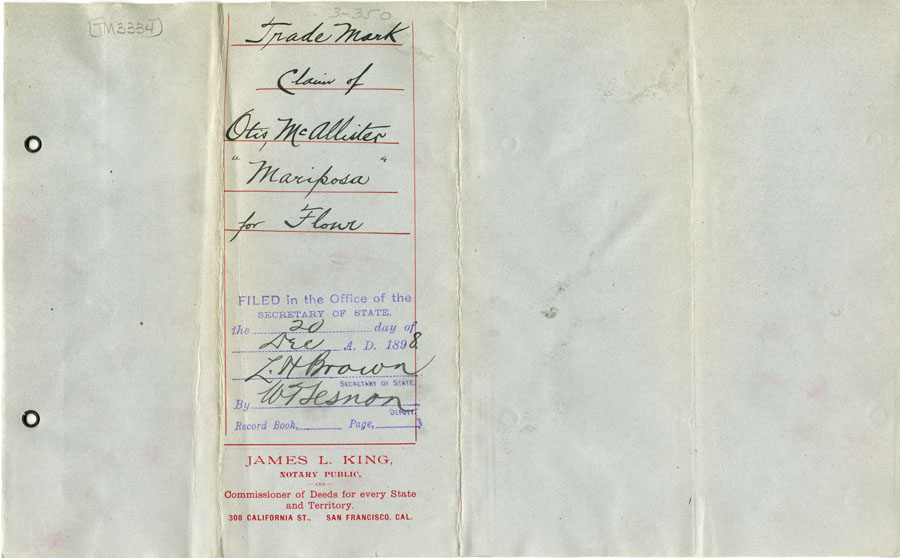 TM3334
3-350
Trade Mark
Claim of
Otis, McAllister
"Mariposa"
for Flour
FILED in the Office of the
SECRETARY OF STATE.
the 20 day of
Dec A. D. 1898
L. H. Brown
SECRETARY OF STATE.
By
DEPUTY.
Record Book, Page,
JAMES L. KING,
NOTARY PUBLIC,
AND
Commissioner of Deeds for every State
and Territory.
308 CALIFORNIA ST., SAN FRANCISCO, CAL.